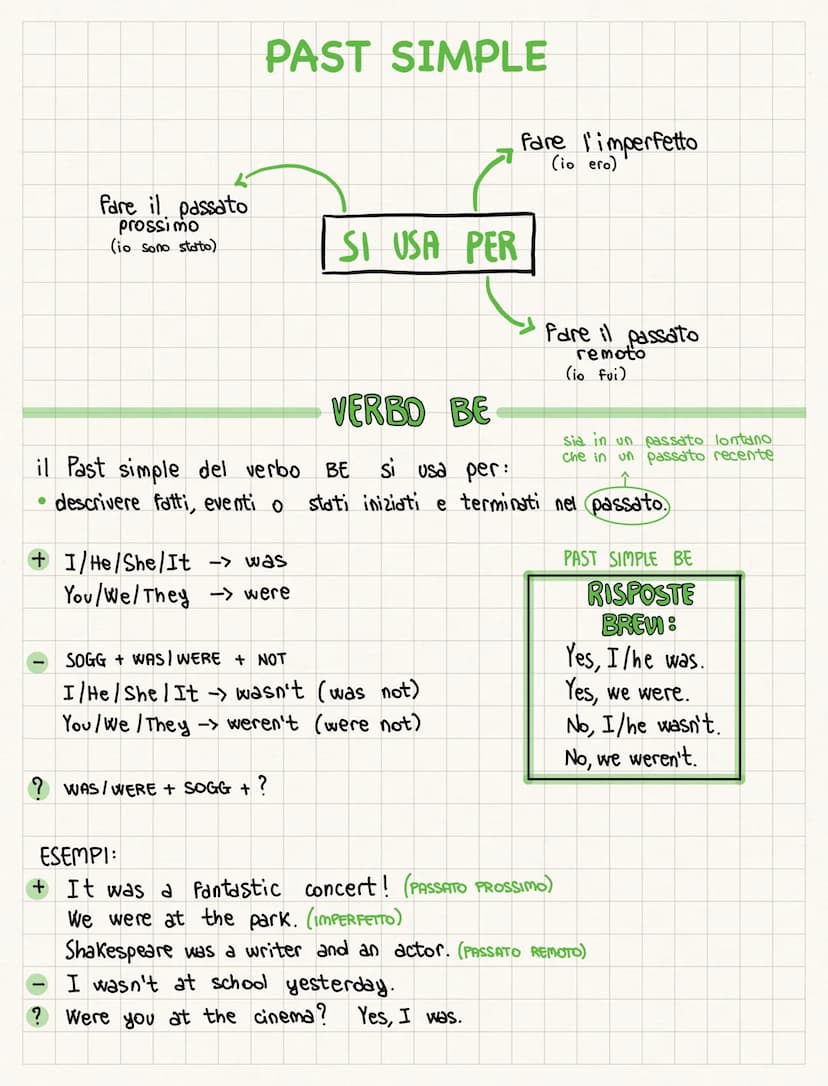 PAST SIMPLE
fare l'imperfetto
(io ero)
fare il passato
prossimo
(io sono stato)
SI USA PER
fare il passato
remoto
(io fui)
VERBO BE
sia in un passato lontano
che in un passato recente
il Past simple del verbo BE si usa per:
• descrivere fatti, eventi o stati iniziati e terminati nel passato.
+ I/He/She/It -> was
You/We/They -> were
- SOGG + WAS/WERE + NOT
I/He/She/It -> wasn't (was not)
You/We/They -> weren't (were not)
? WAS/WERE + SOGG + ?
PAST SIMPLE BE
RISPOSTE
BREVI:
Yes, I/he was.
Yes, we were.
No, I/he wasn't.
No, we weren't.
ESEMPI:
+ It was a fantastic concert! (PASSATO PROSSIMO)
We were at the park. (IMPERFETTO)
Shakespeare was a writer and an actor. (PASSATO REMOTO)
- I wasn't at school yesterday.
? Were you at the cinema? Yes, I was.